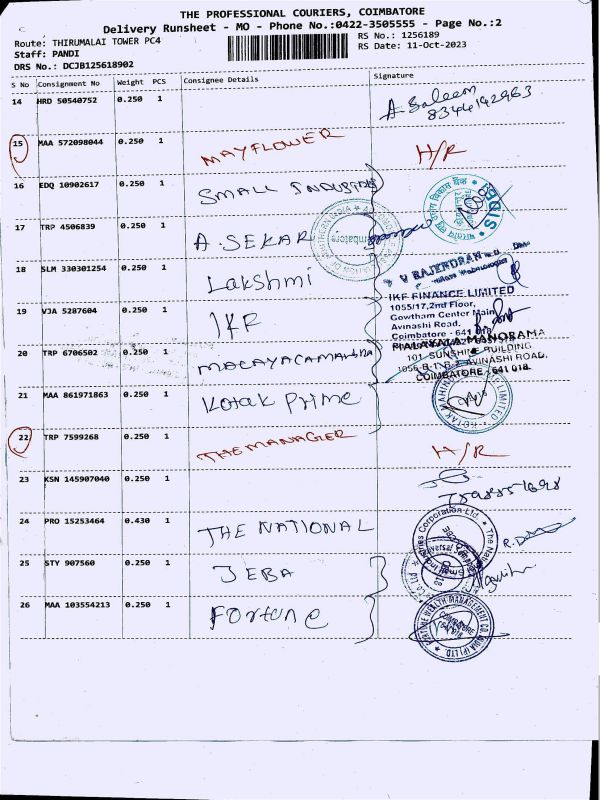 THE PROFESSIONAL COURIERS, COIMBATORE
Delivery Runsheet - MO - Phone No.:0422-3505555 - Page No.:2
Route: THIRUMALAI TOWER PC4
RS No.: 1256189
Staff: PANDI
RS Date: 11-Oct-2023
DRS No.: DCJB125618902
S No Consignment No Weight PCS Consignee Details Signature
14 HRD 50540752 0.250 1 A. Saleem
8344192963
15 MAA 572098044 0.250 1 MAYFLOWER H/R
16 EDQ 10902617 0.250 1 SMALL INDUSTRIES
17 TRP 4506839 0.250 1 A. SEKAR
18 SLM 330301254 0.250 1 Lakshmi V RAJENDRAN
19 VJA 5287604 0.250 1 IKF
IKF FINANCE LIMITED
1055/17,2nd Floor,
Gowtham Center Main
Avinashi Road.
Coimbatore - 641 018
20 TRP 6706502 0.250 1 MALAYALAMANORAMA
MALAYALA MANORAMA
101 SUNSHINE BUILDING
AVINASHI ROAD,
COIMBATORE - 641 018
21 MAA 861971863 0.250 1 Kotak Prime
22 TRP 7599268 0.250 1 THE MANAGER H/R
23 KSN 145907040 0.250 1
24 PRO 15253464 0.430 1 THE NATIONAL
25 STY 907560 0.250 1 JEBA
26 MAA 103554213 0.250 1 Fortune
FORTUNE WEALTH MANAGEMENT CO. INDIA (P) LTD.
COIMBATORE